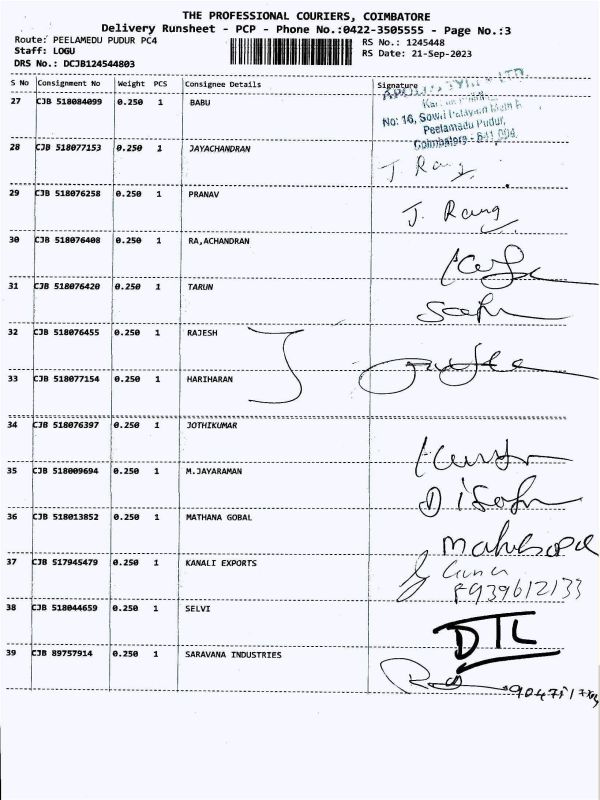 THE PROFESSIONAL COURIERS, COIMBATORE
Delivery Runsheet - PCP - Phone No.:0422-3505555 - Page No.:3
Route: PEELAMEDU PUDUR PC4
RS No.: 1245448
Staff: LOGU
RS Date: 21-Sep-2023
DRS No.: DCJB124544803
S No Consignment No Weight PCS Consignee Details Signature
27 CJB 518084099 0.250 1 BABU
No: 16,
Peelamedu Pudur,
Coimbatore - 641 004
28 CJB 518077153 0.250 1 JAYACHANDRAN
J. Rang
29 CJB 518076258 0.250 1 PRANAV
J. Rang
30 CJB 518076408 0.250 1 RA,ACHANDRAN
31 CJB 518076420 0.250 1 TARUN
32 CJB 518076455 0.250 1 RAJESH
33 CJB 518077154 0.250 1 HARIHARAN
34 CJB 518076397 0.250 1 JOTHIKUMAR
35 CJB 518009694 0.250 1 M.JAYARAMAN
36 CJB 518013852 0.250 1 MATHANA GOBAL
37 CJB 517945479 0.250 1 KANALI EXPORTS
8939612133
38 CJB 518044659 0.250 1 SELVI
DTL
39 CJB 89757914 0.250 1 SARAVANA INDUSTRIES